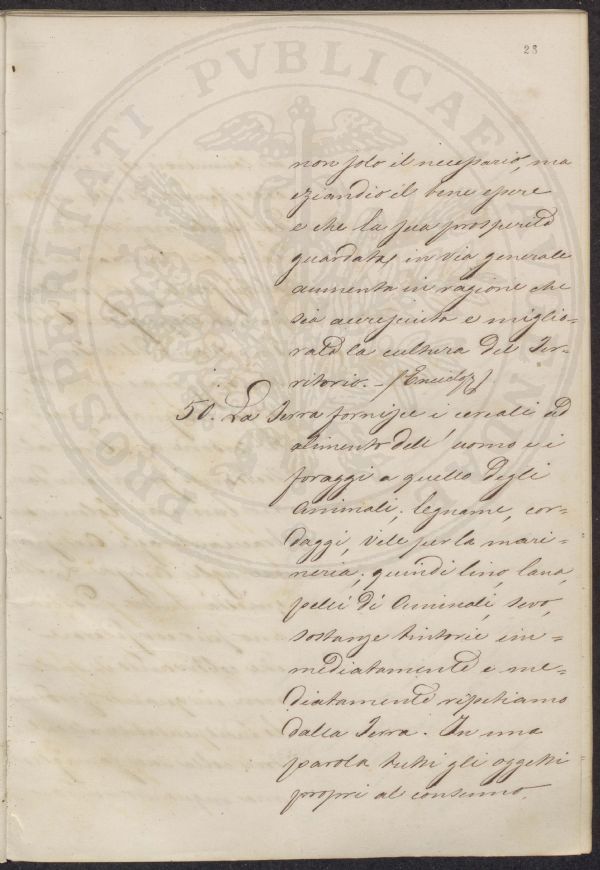 23
non solo il necessario, ma
eziandio il bene essere
e che la sua prosperità
guardata in via generale
aumenta in ragione che
sia accresciuta e miglio=
rata la cultura del Ter=
ritorio. _ (Enciclop.)
50. La Terra fornisce i cereali ad
alimento dell' uomo e i
foraggi a quello degli
animali; legname, cor=
daggi, vele per la mari=
neria; quindi lino, lana,
pelli di animali, sevo,
sostanze tintorie im=
mediatamente e me=
diatamente ripetiamo
dalla Terra. In una
parola tutti gli oggetti
propri al consumo,
PROSPERITATI PVBLICAE